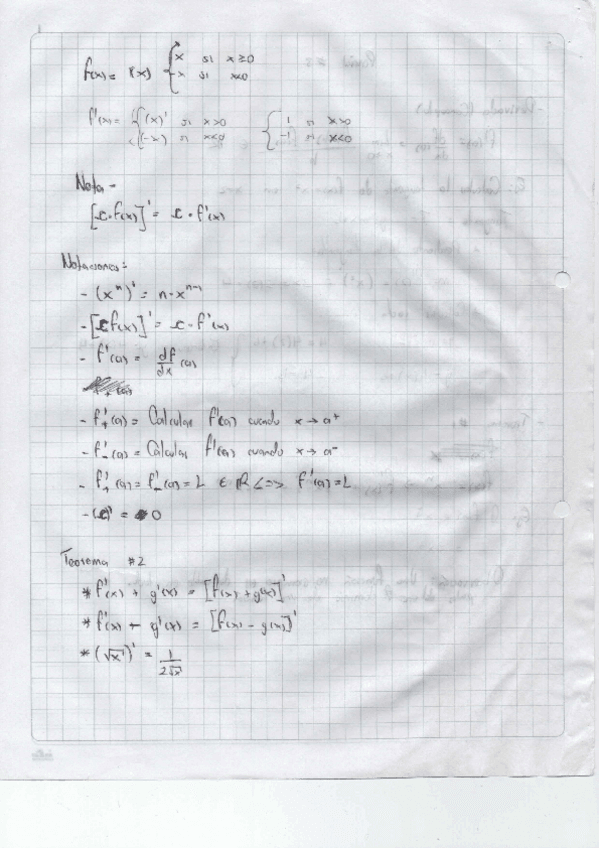 f(x) = |x| { x si x≥0
-x si x<0
f'(x) = { (x)' si x>0 { 1 si x>0
(-x)' si x<0 -1 si x<0
Nota -
[c·f(x)]' = c · f'(x)
Notaciones:
- (xⁿ)' = n·xⁿ⁻¹
- [c f(x)]' = c · f'(x)
- f'(a) = df/dx (a)
- f'₊(a) = Calcular f'(a) cuando x → a⁺
- f'₋(a) = Calcular f'(a) cuando x → a⁻
- f'₊(a) = f'₋(a) = L ∈ ℝ <=> f'(a) = L
- (c)' = 0
Teorema #2
* f'(x) + g'(x) = [f(x) + g(x)]'
* f'(x) - g'(x) = [f(x) - g(x)]'
* (√x)' = 1/2√x